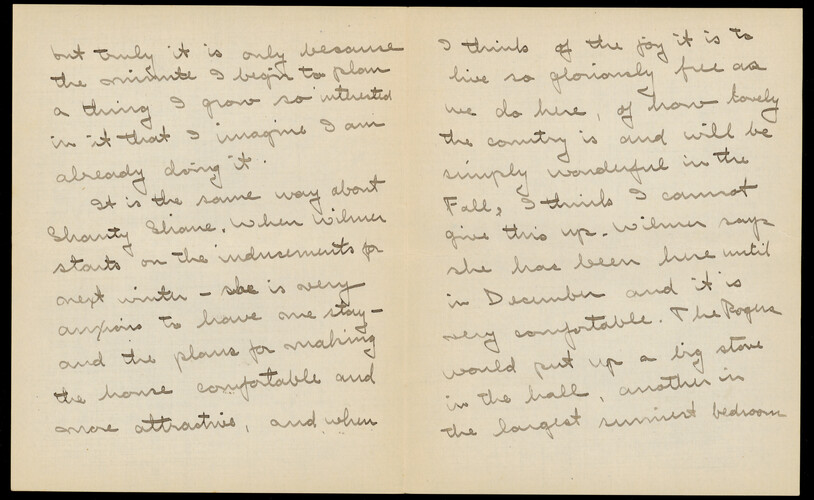 but truly it is only because
the minute I begin to plan
a thing I grow so interested
in it that I imagine I am
already doing it.
It is the same way about
Shanty Shane. When Wilmer
starts on the inducements for
next winter - she is very
anxious to have me stay -
and the plans for making
the house comfortable and
more attractive, and when
I think of the joy it is to
live so gloriously free as
we do here, of how lovely
the country is and will be
simply wonderful in the
Fall, I think I cannot
give this up. Wilmer says
she has been here until
in December and it is
very comfortable. The Rogers
would put up a big stove
in the hall, another in
the largest sunniest bedroom